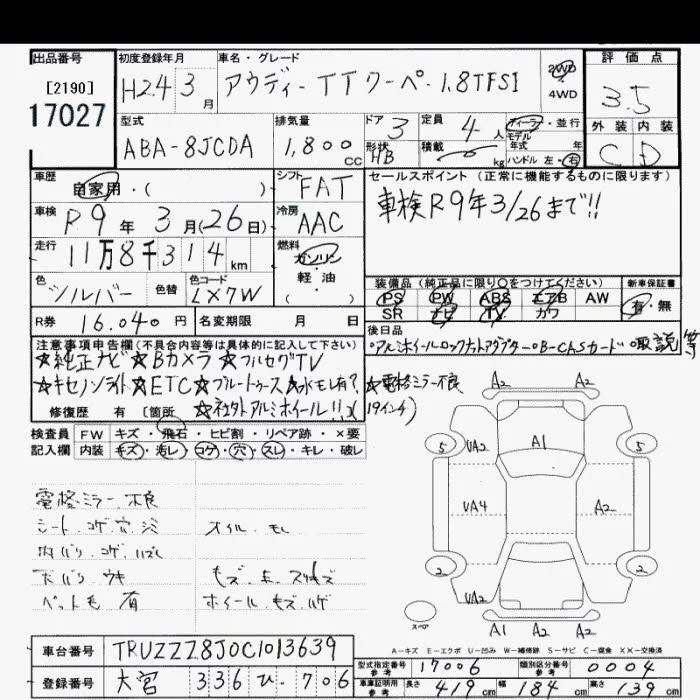 出品番号
[2190]
17027
初度登録年月
H24 3 月
車名・グレード
アウディ TTクーペ 1.8TFSI
2WD
4WD
評価点
3.5
外装 内装
C D
型式
ABA-8JCDA
排気量
1,800 cc
ドア 3
形状 HB
定員 4 人
積載 kg
ディーラー・並行
モデル
年式 年
ハンドル 左・右
車歴
自家用・( )
シフト
FAT
セールスポイント(正常に機能するものに限ります)
車検R9年3/26まで!!
車検
R9 年 3 月(26日)
冷房
AAC
走行
11万8千314 km
燃料
ガソリン
軽・油
( )
色
シルバー
色替
色コード
LX7W
装備品(純正品に限り○をつけてください)
新車保証書
PS PW ABS エアB AW
SR ナビ TV カワ
有・無
R券
16.040 円
名変期限 月 日
後日品
・アルミホイールロックナットアダプター・B-CASカード・取説 等
注意事項申告欄(不具合内容等は具体的に記入して下さい)
☆純正ナビ☆Bカメラ☆フルセグTV
☆キセノンライト☆ETC☆ブルートゥース☆水モレ有?☆電格ミラー不良
修復歴 有 〔箇所 ☆社外アルミホイール!!(19インチ)
検査員 FW キズ・飛石・ヒビ割・リペア跡・×要
記入欄 内装 キズ・汚レ・コゲ・穴・スレ・キレ・破レ
電格ミラー 不良
シート コゲ 穴 シミ
オイル モレ
内バリ コゲ ハズレ
天バリ ウキ
ペット毛 有
ホイール キズ ハゲ
A2 A2
5 UA2 A1 5
UA4 A2
2 UA2 2
スペア
A1 A2 A2
A－キズ E－エクボ U－凹み W－補修跡 S－サビ C－腐食 XX－交換済
車台番号
TRUZZZ8J0C1013639
登録番号
大宮 336 ひ 706
型式指定番号
参考
17006
類別区分番号
参考
0004
車庫証明用
参考
長さ 419 cm 幅 184 cm 高さ 139 cm